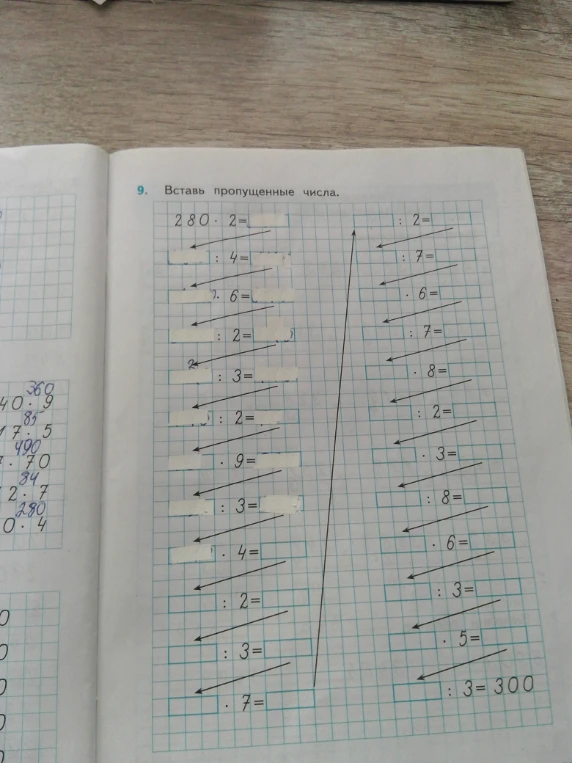 9. Вставь пропущенные числа.
280 · 2 =
: 4 =
· 6 =
: 2 =
: 3 =
: 2 =
· 9 =
: 3 =
· 4 =
: 2 =
: 3 =
· 7 =
: 2 =
: 7 =
· 6 =
: 7 =
· 8 =
: 2 =
· 3 =
: 8 =
· 6 =
: 3 =
· 5 =
: 3 = 300
360
40 · 9
85
17 · 5
490
7 · 70
84
12 · 7
280
0 · 4